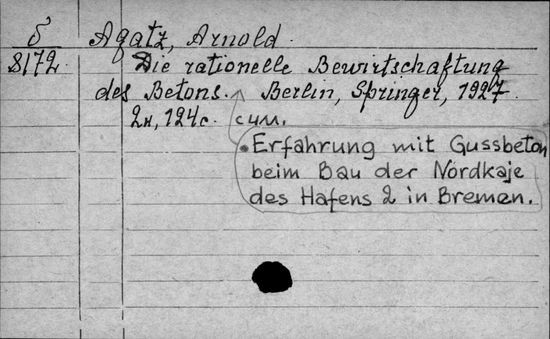 б Agatz, Arnold.
8172 Die rationelle Bewirtschaftung
des Betons. Berlin, Springer, 1927.
2н, 124с. сим.
• Erfahrung mit Gussbeton
beim Bau der Nordkaje
des Hafens 2 in Bremen.